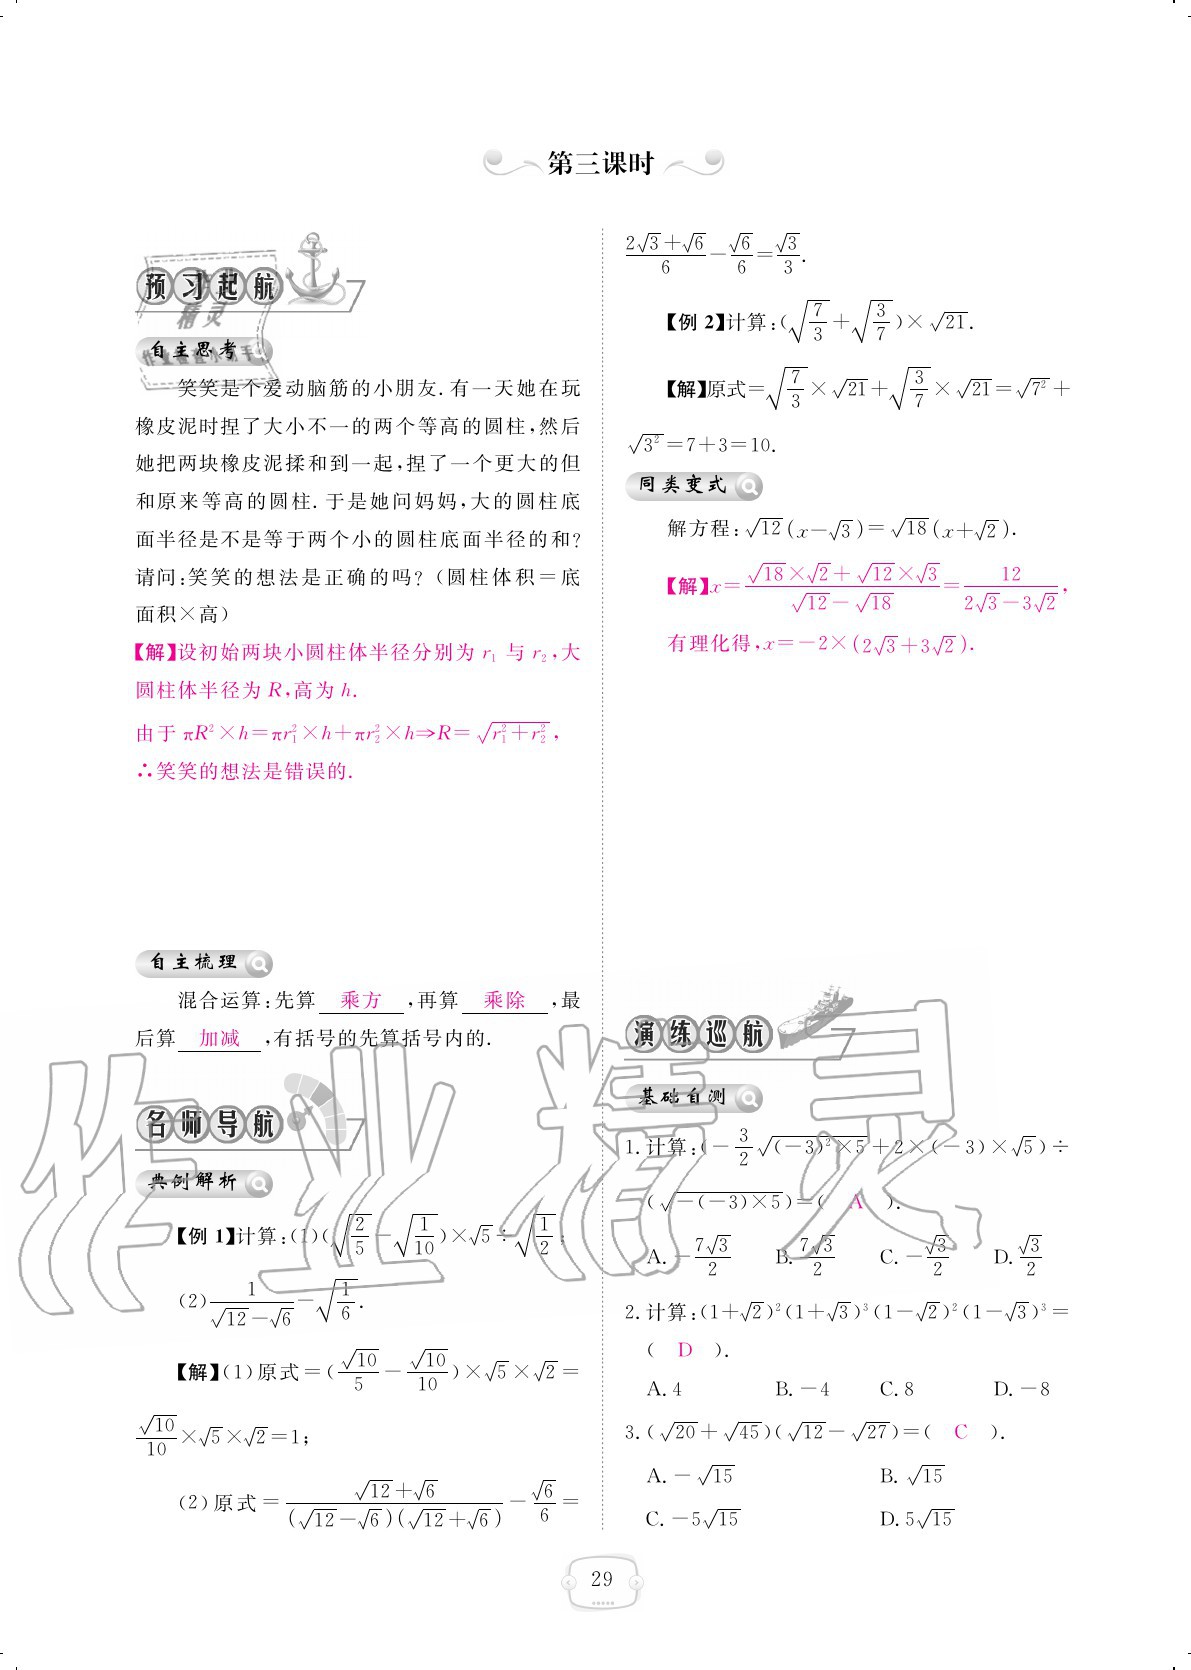 第三课时
预习起航
精灵
自主思考
笑笑是个爱动脑筋的小朋友.有一天她在玩
橡皮泥时捏了大小不一的两个等高的圆柱,然后
她把两块橡皮泥揉和到一起,捏了一个更大的但
和原来等高的圆柱.于是她问妈妈,大的圆柱底
面半径是不是等于两个小的圆柱底面半径的和?
请问:笑笑的想法是正确的吗?(圆柱体积=底
面积×高)
【解】设初始两块小圆柱体半径分别为 r₁ 与 r₂,大
圆柱体半径为 R,高为 h.
由于 πR²×h=πr₁²×h+πr₂²×h⇒R=√(r₁²+r₂²),
∴笑笑的想法是错误的.
自主梳理
混合运算:先算 乘方 ,再算 乘除 ,最
后算 加减 ,有括号的先算括号内的.
名师导航
典例解析
【例 1】计算:(1)(√(2/5)-√(1/10))×√5÷√(1/2);
(2)1/(√12-√6)-√(1/6).
【解】(1)原式=(√10/5-√10/10)×√5×√2=
√10/10×√5×√2=1;
(2)原式=(√12+√6)/((√12-√6)(√12+√6))-√6/6=
(2√3+√6)/6-√6/6=√3/3.
【例 2】计算:(√(7/3)+√(3/7))×√21.
【解】原式=√(7/3)×√21+√(3/7)×√21=√7²+
√3²=7+3=10.
同类变式
解方程:√12(x-√3)=√18(x+√2).
【解】x=(√18×√2+√12×√3)/(√12-√18)=12/(2√3-3√2),
有理化得,x=-2×(2√3+3√2).
演练巡航
基础自测
1.计算:(-3/2√((-3)²×5)+2×(-3)×√5)÷
(√(-(-3)×5))=( A ).
A.-7√3/2 B.7√3/2 C.-√3/2 D.√3/2
2.计算:(1+√2)²(1+√3)³(1-√2)²(1-√3)³=
( D ).
A.4 B.-4 C.8 D.-8
3.(√20+√45)(√12-√27)=( C ).
A.-√15 B.√15
C.-5√15 D.5√15
29
作业精灵